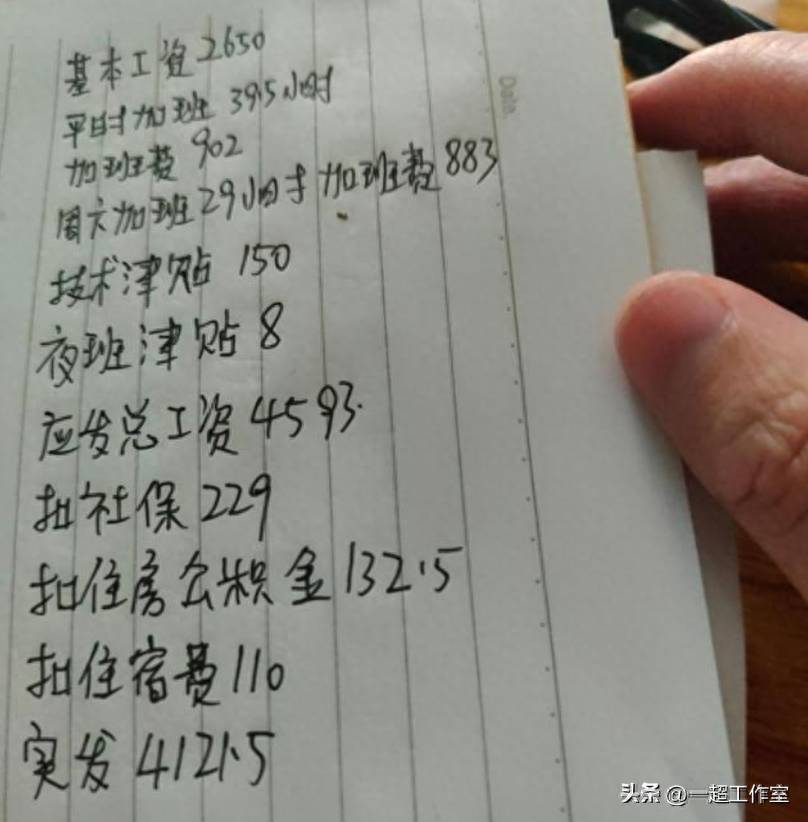 Date
基本工资 2650
平时加班 39.5小时
加班费 902
周六加班29小时 加班费883
技术津贴 150
夜班津贴 8
应发总工资 4593.
扣社保 229
扣住房公积金 132.5
扣住宿费 110
实发 4121.5
头条 @一超工作室